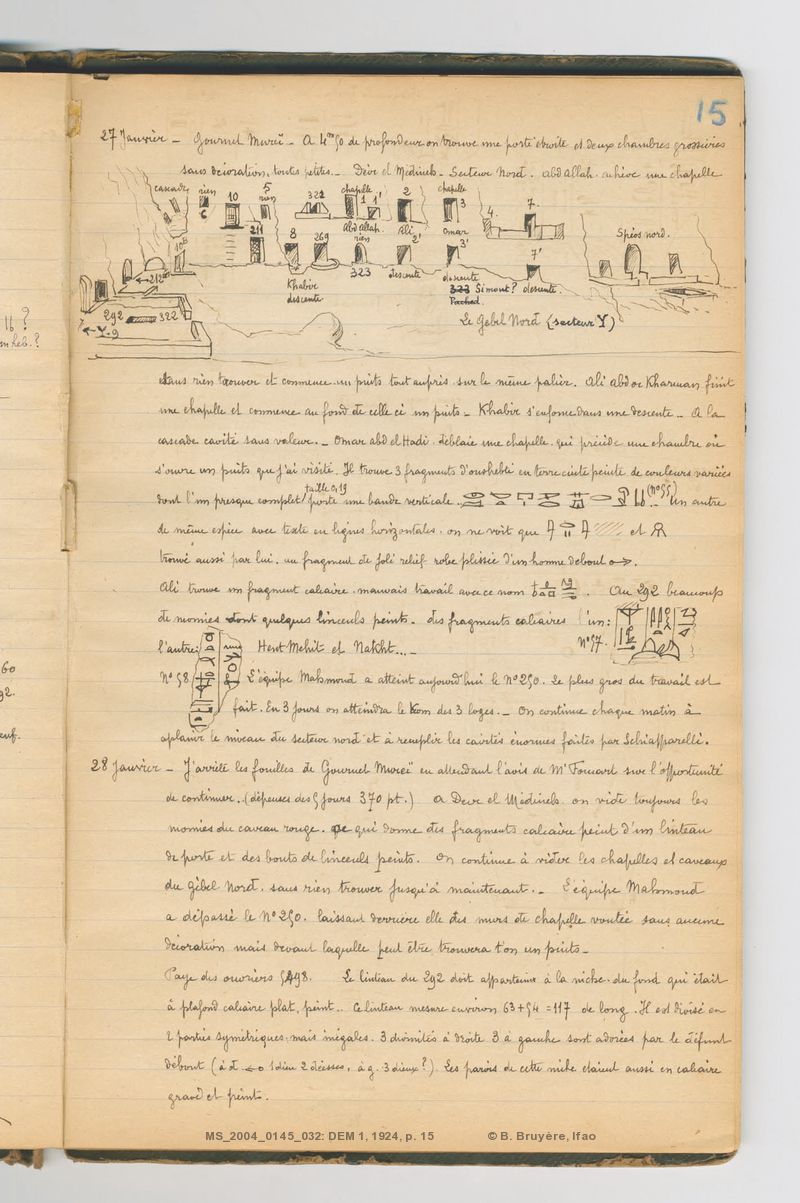 15
27 Janvier _ Gournet Mureï _ A 4m50 de profondeur on trouve une porte étroite et deux chambres grossières
sans décoration, toutes petites _ Deir el Médineh _ Secteur Nord. Abdallah achève une chapelle
cascade rien 10 5 rien 321 chapelle 1 1' 2 chapelle 3 4. 7.
6 211 8 269 Abdallah rien Ali 2' Omar 3' Spéos nord.
10B 212 Khabir descente 323 descente descente 7' descente.
292 322 323 Simont?
Y.9 Le Gebel Nord (secteur Y)
sans rien trouver et commence un puits tout auprès sur le même palier. Ali Abd or Kharman finit
une chapelle et commence au fond de celle ci un puits _ Khabir s'enfonce dans une descente _ A la
cascade cavité sans valeur. _ Omar abd el Hadi déblaie une chapelle qui précède une chambre où
s'ouvre un puits que j'ai visité. Il trouve 3 fragments d'oushebti en terre cuite peinte de couleurs variées
taille 0,19
dont l'un presque complet porte une bande verticale (n° 55) Un autre
de même espèce avec texte en lignes horizontales. on ne voit que et
trouvé aussi par lui. un fragment de joli relief robe plissée d'un homme debout
Ali trouve un fragment calcaire, mauvais travail avec ce nom . Au 292 beaucoup
de momies dont quelques linceuls peints. des fragments calcaires l'un:
l'autre: Hent Mehit et Nakht... N° 57.
N° 58 L'équipe Mahmoud a atteint aujourd'hui le N° 250. Le plus gros du travail est
fait. En 3 jours on atteindra le Kom des 3 loges. _ On continue chaque matin à
aplanir le niveau du secteur nord et à remplir les cavités énormes faites par Schiapparelli.
28 Janvier _ J'arrête les fouilles de Gournet Mureï en attendant l'avis de Mr Foucart sur l'opportunité
de continuer. (dépenses des 5 jours 370 pt.) A Deir el Médineh on vide toujours les
momies du caveau rouge. ce qui donne des fragments calcaire peint d'un linteau
de porte et des bouts de linceuls peints. On continue à vider les chapelles et caveaux
du gébel Nord. sans rien trouver jusqu'à maintenant. _ L'équipe Mahmoud
a dépassé le N° 250. laissant derrière elle des murs de chapelle voutée sans aucune
décoration mais devant laquelle peut être trouvera t'on un puits _
Paye des ouvriers 5498. Le linteau du 292 doit appartenir à la niche du fond qui était
à plafond calcaire plat, peint. Ce linteau mesure environ 63 + 54 = 117 de long. Il est divisé en
2 parties symétriques mais inégales. 3 divinités à droite 3 à gauche sont adorées par le défunt
debout (à d. 1 dieu 2 déesses, à g. 3 dieux?). Les parois de cette niche étaient aussi en calcaire
gravé et peint.
16 ?
60
92.
MS_2004_0145_032: DEM 1, 1924, p. 15 © B. Bruyère, Ifao